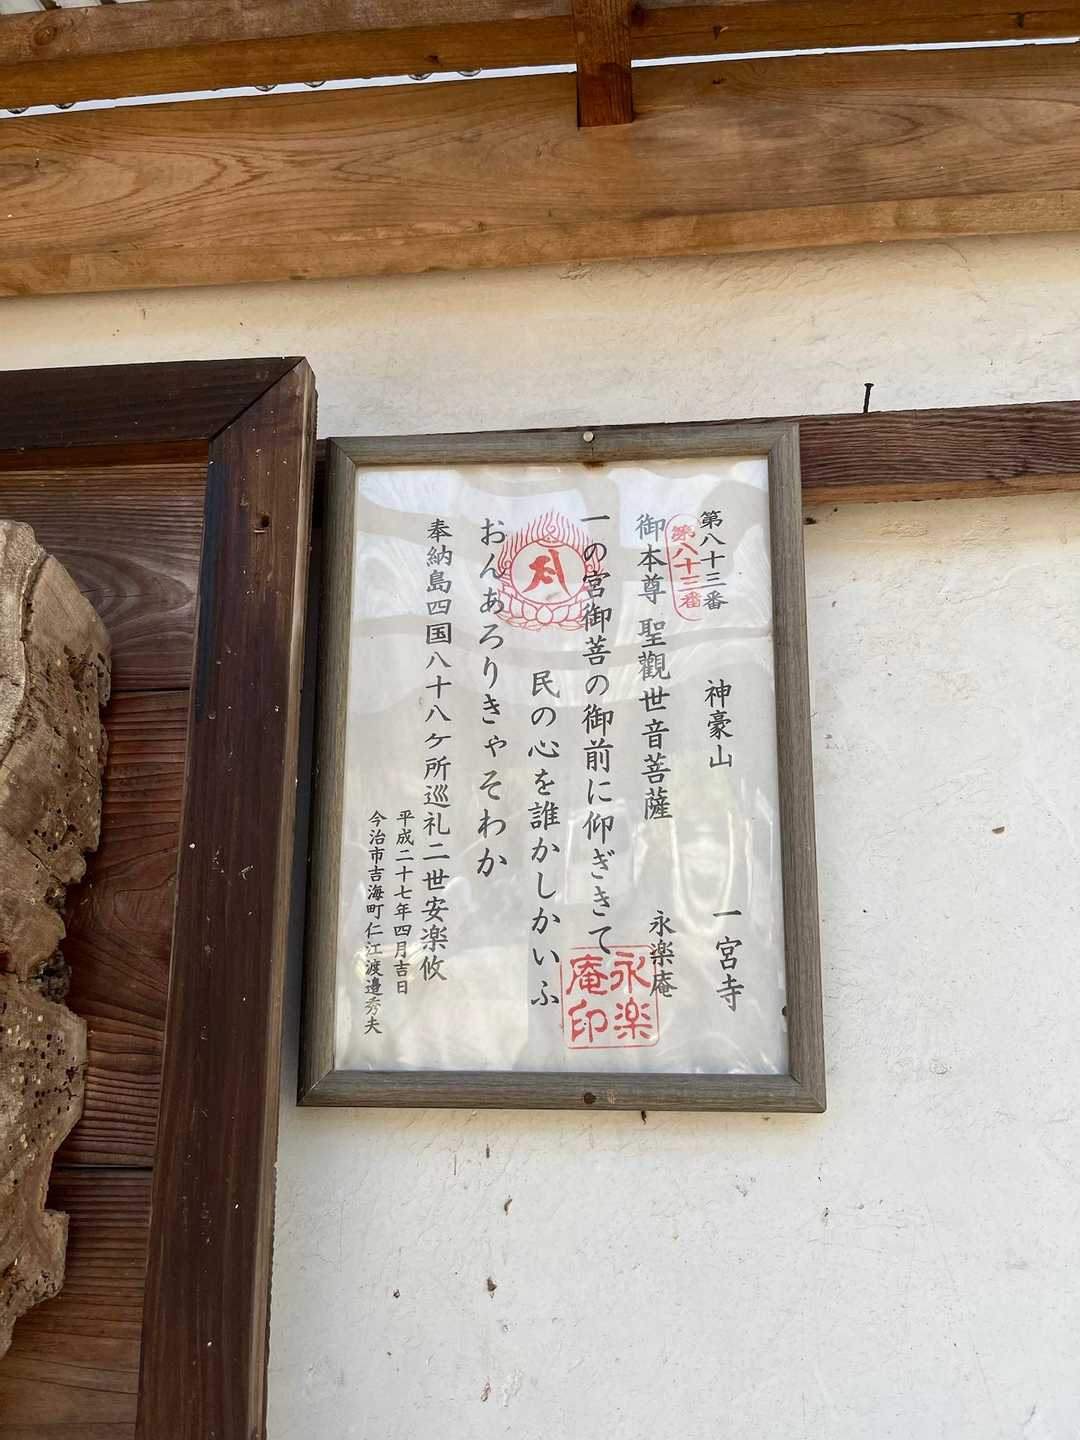 第八十三番 神豪山 一宮寺
第八十三番
御本尊 聖觀世音菩薩 永楽庵
一の宮御菩の御前に仰ぎきて
民の心を誰かしかいふ
おんあろりきゃそわか
奉納島四国八十八ヶ所巡礼二世安楽攸
平成二十七年四月吉日
今治市吉海町仁江渡邉秀夫
永楽
庵印